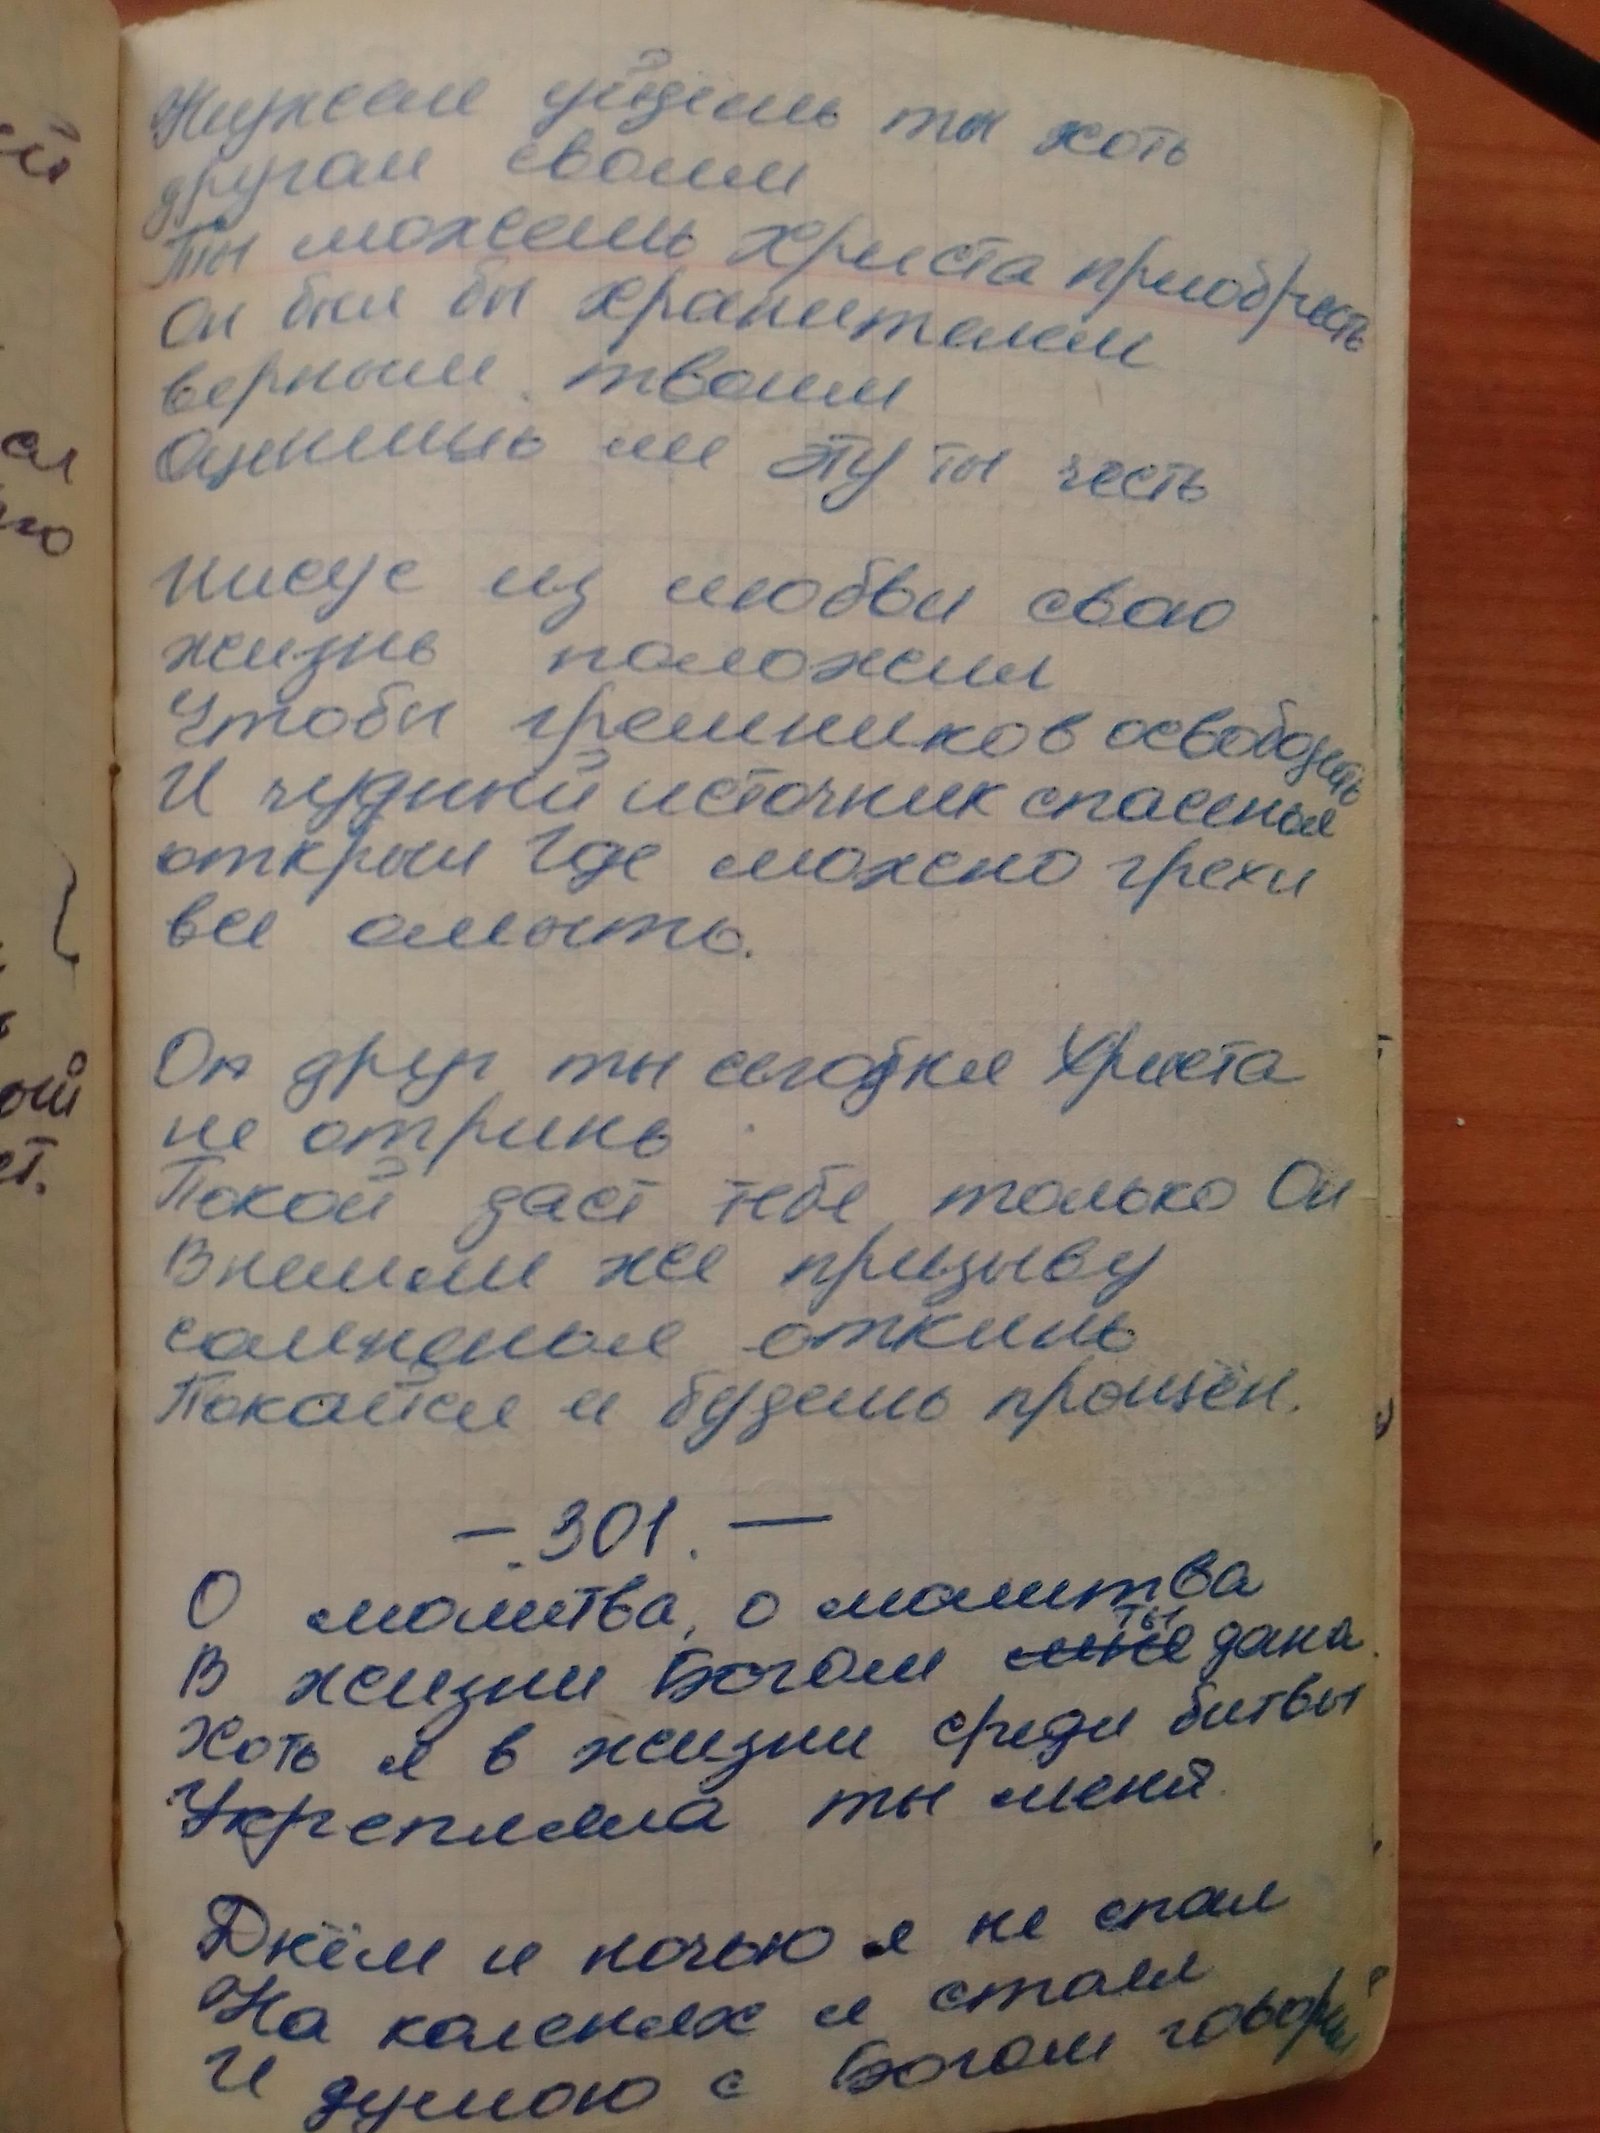 Нужели уйдешь ты хоть
другом своим
Ты можешь Христа приобресть
Он был бы хранителем
верным твоим
Оценишь ли эту ты честь
Иисус из любви свою
жизнь положил
Чтобы грешников освободить
И чудный источник спасенья
открыл Где можно грехи
все омыть.
Он друг ты сегодня Христа
не отринь
Покой даст тебе только Он
Внемли же призыву
сомненья откинь
Покайся и будешь прощён.
— .301. —
О молитва, о молитва
В жизни Богом мне ты дана
Хоть я в жизни среди битвы
Укрепляла ты меня.
Днём и ночью я не спал
На коленях я стоял
И думою с Богом говорил